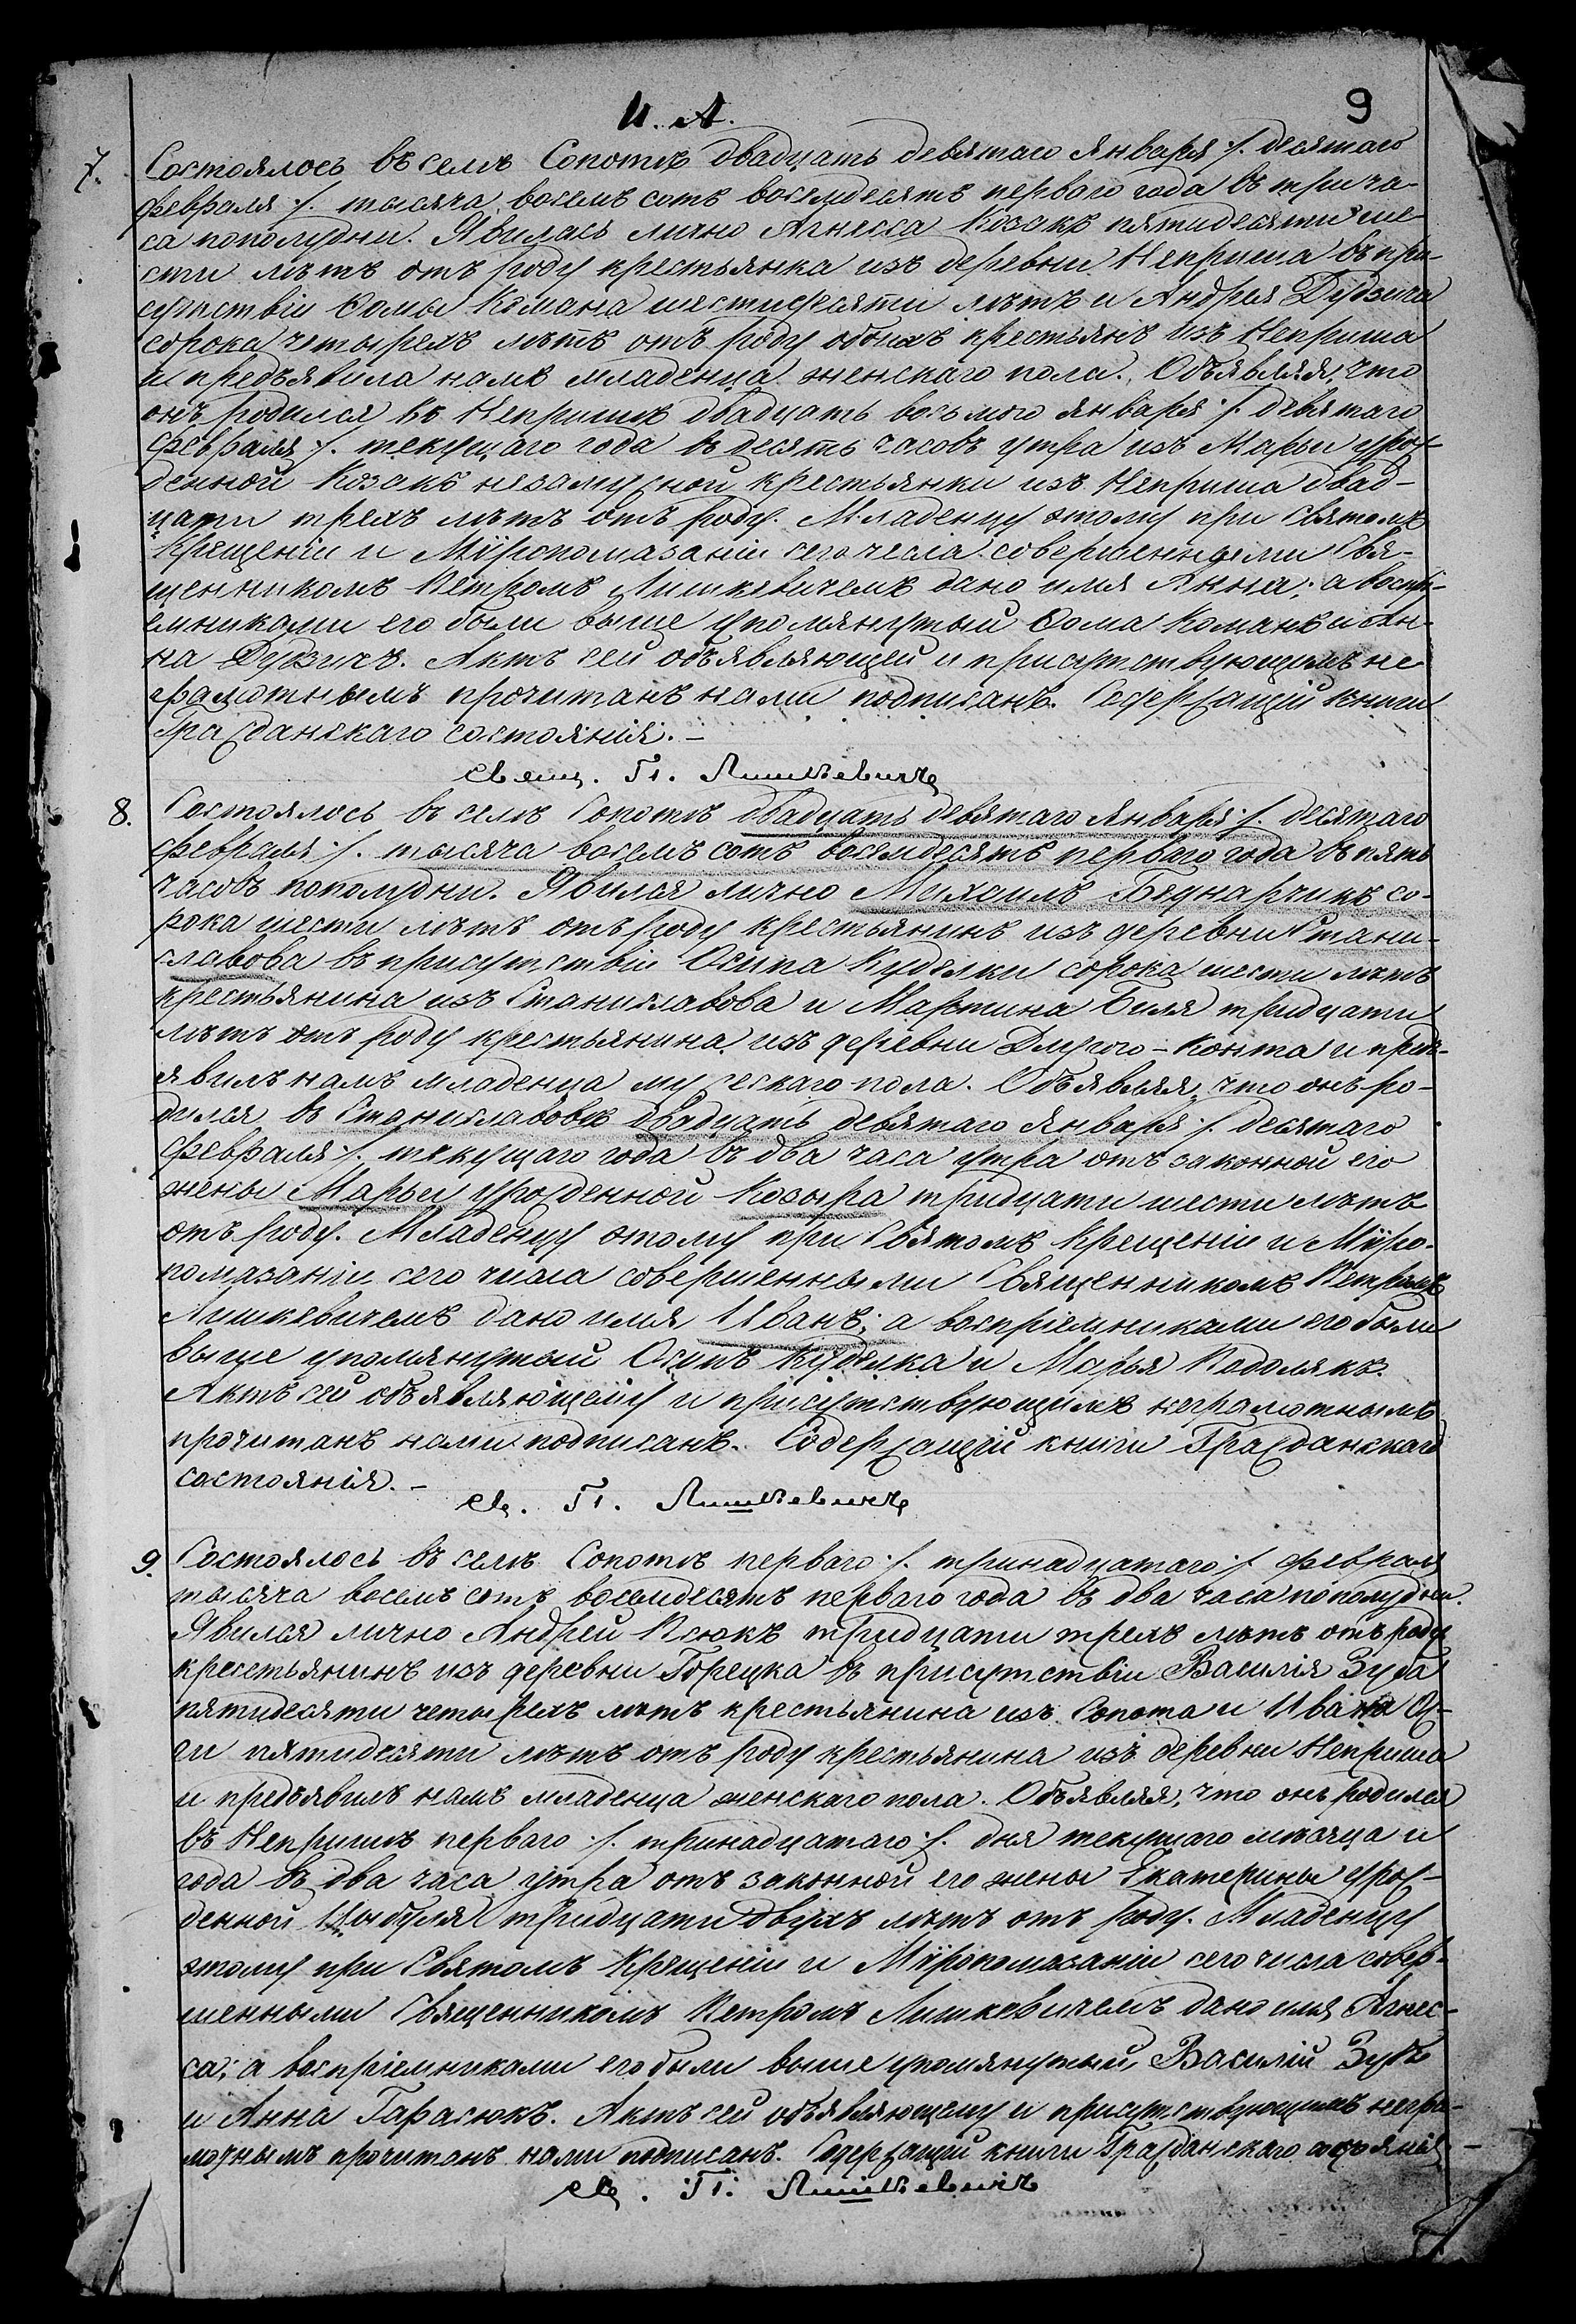 И. А.
9
7. Состоялось въ селѣ Сопотѣ двадцать девятаго Января ./. десятаго
Февраля ./. тысяча восемъ сотъ восемдесятъ перваго года въ три ча-
са пополудни. Явилась лично Агнесса Козакъ пятидесяти ше-
сти лѣтъ отъ роду крестьянка изъ деревни Неприша въ при-
сутствіи Ѳомы Комана шестидесяти лѣтъ и Андрея Дудзича
сорока четырехъ лѣтъ отъ роду обоихъ крестьянъ изъ Неприша
и предъявила намъ младенца женскаго пола. Объявляя, что
онъ родился въ Непришѣ двадцать восьмого Января ./. девятаго
Февраля ./. текущаго года въ десять часовъ утра изъ Марьи урож-
денной Козакъ незамужной крестьянки изъ Неприша двад-
цати трехъ лѣтъ отъ роду. Младенцу этому при Святомъ
Крещеніи и Мѵропомазаніи сего числа совершенными Свя-
щенникомъ Петромъ Лишкевичемъ дано имя Анна; а воспрі-
емниками его были выше упомянутый Ѳома Команъ и Ан-
на Дудзичъ. Актъ сей объявляющей и присутствующимъ не
грамотнымъ прочитанъ нами подписанъ. Содержащій книги
Гражданскаго состоянія. –
Свящ. П. Лишкевичъ
8. Состоялось въ селѣ Сопотѣ двадцать девятаго Января ./. десятаго
Февраля ./. тысяча восемъ сотъ восемдесятъ перваго года въ пять
часовъ пополудни. Явился лично Михаилъ Беднарчикъ со-
рока шести лѣтъ отъ роду крестьянинъ изъ деревни Стани-
славова въ присутствіи Осипа Куделки сорока шести лѣтъ
крестьянина изъ Станиславова и Мартина Биля тридцати
лѣтъ отъ роду крестьянина изъ деревни Длугого-Конта и предъ-
явилъ намъ младенца мужескаго пола. Объявляя, что онъ ро-
дился въ Станиславовѣ двадцать девятаго Января ./. десятаго
Февраля ./. текущаго года въ два часа утра отъ законной его
жены Марьи урожденной Козыра тридцати шести лѣтъ
отъ роду. Младенцу этому при Святомъ Крещеніи и Мѵро-
помазаніи сего числа совершенными Священникомъ Петромъ
Лишкевичемъ дано имя Иванъ; а воспріемниками его были
выше упомянутый Осипъ Куделка и Марья Подолякъ.
Актъ сей объявляющему и присутствующимъ неграмотнымъ
прочитанъ нами подписанъ. Содержащій книги Гражданскаго
состоянія. –
Св. П. Лишкевичъ
9. Состоялось въ селѣ Сопотѣ перваго ./. тринадцатаго ./. Февраля
тысяча восемъ сотъ восемдесятъ перваго года въ два часа пополудни.
Явился лично Андрей Псюкъ тридцати трехъ лѣтъ отъ роду
крестьянинъ изъ деревни Горецка въ присутствіи Василія Зуба
пятидесяти четырехъ лѣтъ крестьянина изъ Сопота и Ивана
ги пятидесяти лѣтъ отъ роду крестьянина изъ деревни Неприша
и предъявилъ намъ младенца женскаго пола. Объявляя, что онъ родился
въ Непришѣ перваго ./. тринадцатаго ./. дня текущаго мѣсяца и
года въ два часа утра отъ законной его жены Екатерины урож-
денной Цыбуля тридцати двухъ лѣтъ отъ роду. Младенцу
этому при Святомъ Крещеніи и Мѵропомазаніи сего числа совер-
шенными Священникомъ Петромъ Лишкевичемъ дано имя Агнес-
са; а воспріемниками его были выше упомянутый Василій Зубъ
и Анна Гарасюкъ. Актъ сей объявляющему и присутствующимъ негра-
мотнымъ прочитанъ нами подписанъ. Содержащій книги Гражданскаго состоянія –
Св. П. Лишкевичъ